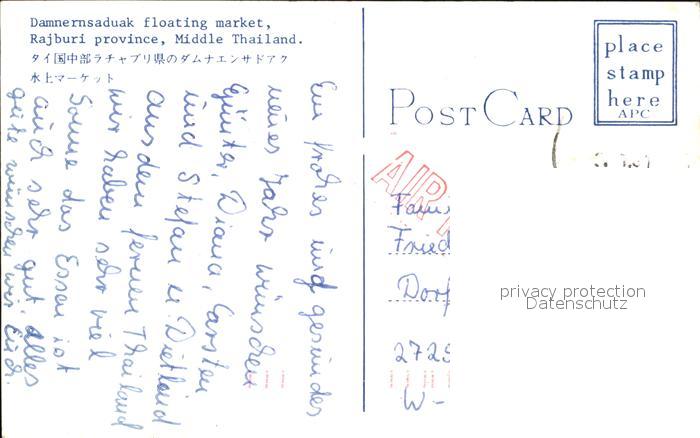 Damnernsaduak floating market,
Rajburi province, Middle Thailand.
タイ国中部ラチャブリ県のダムナエンサドアク
水上マーケット
Ein frohes und gesundes
neues Jahr wünschen
Günter, Diana, Carsten
und Stefan u Dietlind
aus dem fernen Thailand
wir haben sehr viel
Sonne das Essen ist
auch sehr gut. alles
gute wünschen wir Euch.
POST CARD
place
stamp
here
APC
AIR
Fam
Fried
Dorf
2725
W-
privacy protection
Datenschutz